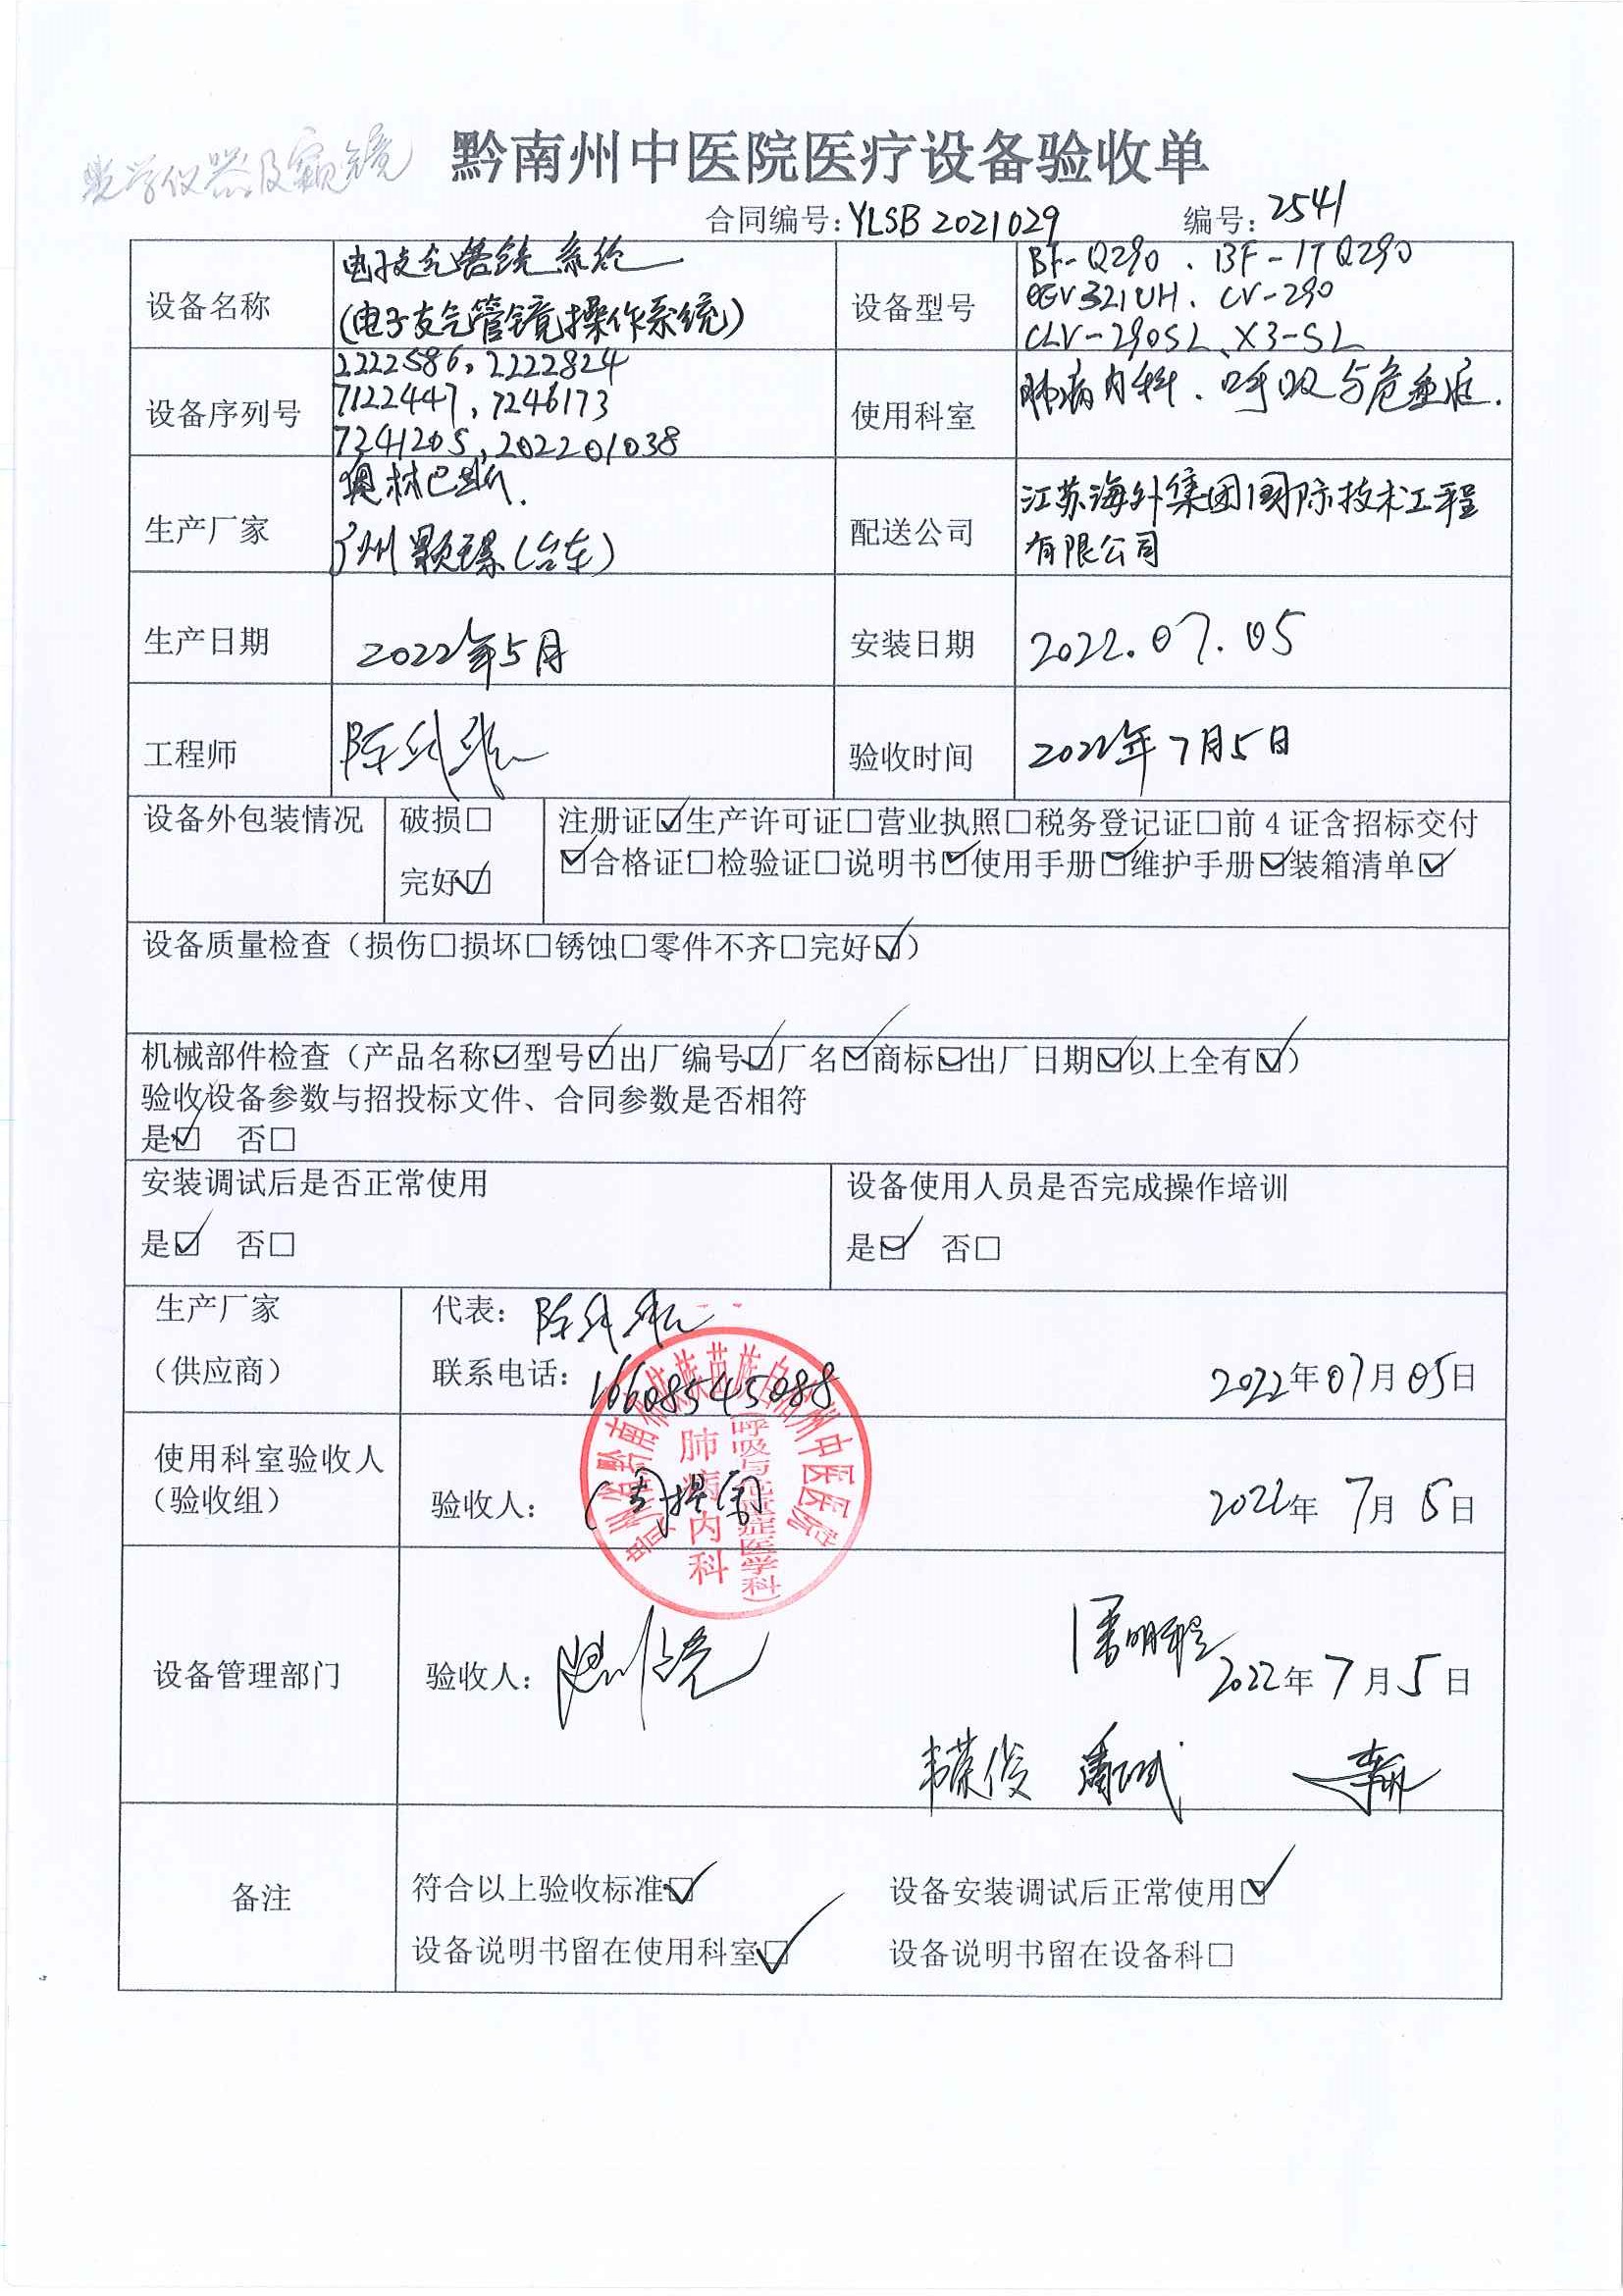 光学仪器及窥镜
黔南州中医院医疗设备验收单
合同编号：YLSB 2021029 编号：2541
设备名称 电子支气管镜系统
(电子支气管镜操作系统)
设备型号 BF-Q290、BF-1TQ290
OEV321UH、CV-290
CLV-290SL、X3-SL
设备序列号 2222586，2222824
7122447，7246173
7241205，202201038
使用科室 肺病内科、呼吸与危重症.
生产厂家 奥林巴斯.
广州 (台车)
配送公司 江苏海外集团国际技术工程
有限公司
生产日期 2022年5月 安装日期 2022.07.05
工程师 验收时间 2022年7月5日
设备外包装情况 破损□
完好☑
注册证☑生产许可证□营业执照□税务登记证□前 4 证含招标交付
☑合格证□检验证□说明书☑使用手册☑维护手册☑装箱清单☑
设备质量检查（损伤□损坏□锈蚀□零件不齐□完好☑）
机械部件检查（产品名称☑型号☑出厂编号☑厂名☑商标☑出厂日期☑以上全有☑）
验收设备参数与招投标文件、合同参数是否相符
是☑ 否□
安装调试后是否正常使用
是☑ 否□
设备使用人员是否完成操作培训
是☑ 否□
生产厂家
（供应商）
代表：
联系电话：16608545088 2022年07月05日
使用科室验收人
（验收组）
验收人： 2022年 7月 5日
贵州省黔南布依族苗族自治州中医医院
肺病内科
（呼吸与危重症医学科）
设备管理部门 验收人： 2022年7月5日
韦荣俊
备注
符合以上验收标准☑ 设备安装调试后正常使用☑
设备说明书留在使用科室☑ 设备说明书留在设备科□